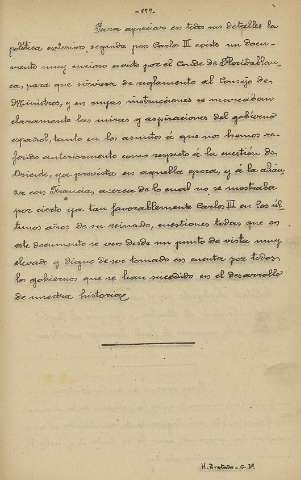 Para apreciar en todos sus detalles la
política exterior seguida por Carlos III existe un docu-
mento muy curioso escrito por el Conde de Floridablan-
ca, para que sirviera de reglamento al Consejo de
Ministros, y en cuyas instrucciones se marcaban
claramente las miras y aspiraciones del gobierno
español, tanto en los asuntos á que nos hemos re-
ferido anteriormente como respecto á la cuestión de
Oriente, ya prevista en aquella época, y á la alian-
za con Francia, acerca de la cual no se mostraba
por cierto ya tan favorablemente Carlos III en los úl-
timos años de su reinado, cuestiones todas que en
este documento se ven desde un punto de vista muy
elevado y digno de ser tomado en cuenta por todos
los gobiernos que se han sucedido en el desarrollo
de nuestra historia.